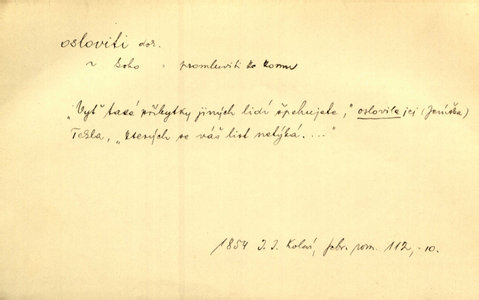 osloviti dok.
~ koho = promluviti ke komu
„Vyť také příbytky jiných lidí špehujete,“ oslovila jej (Jeníška)
Tekla, „kterých se váš list netýká....“
1854 J. J. Kolár, febr. rom. 112,-10.